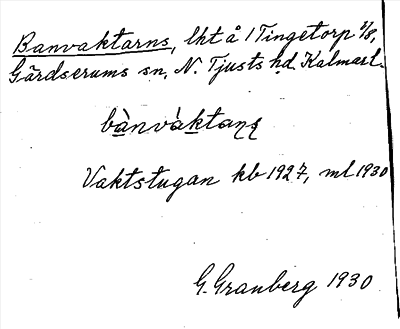 Banvaktarns, lht å 1 Tingetorp 1/8,
Gärdserums sn, N. Tjusts hd. Kalmar l.
bànvàktaṇṣ
Vaktstugan kb 1927, ml 1930
G. Granberg 1930